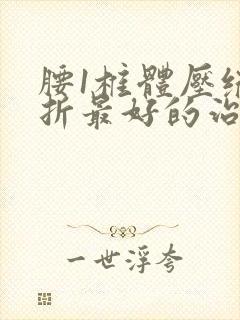 腰1柱體壓縮
折最好的治
一世浮夸